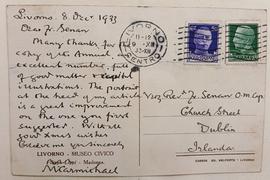 Livorno. 8 Dec. 1933
Dear Fr. Senan
Many thanks for
copy of the Annual, an
excellent number, full
of good matter & capital
illustrations. The portrait
at the head of my article
is a great improvement
on the one you first
suggested. With all
good Xmas wishes
Believe me yours sincerely
LIVORNO - MUSEO CIVICO
MCarmichael
LIVORNO
CENTRO
11-12
9 XII
Very Revd. Fr. Senan O.M.Cap.
Church Street
Dublin
Irlanda